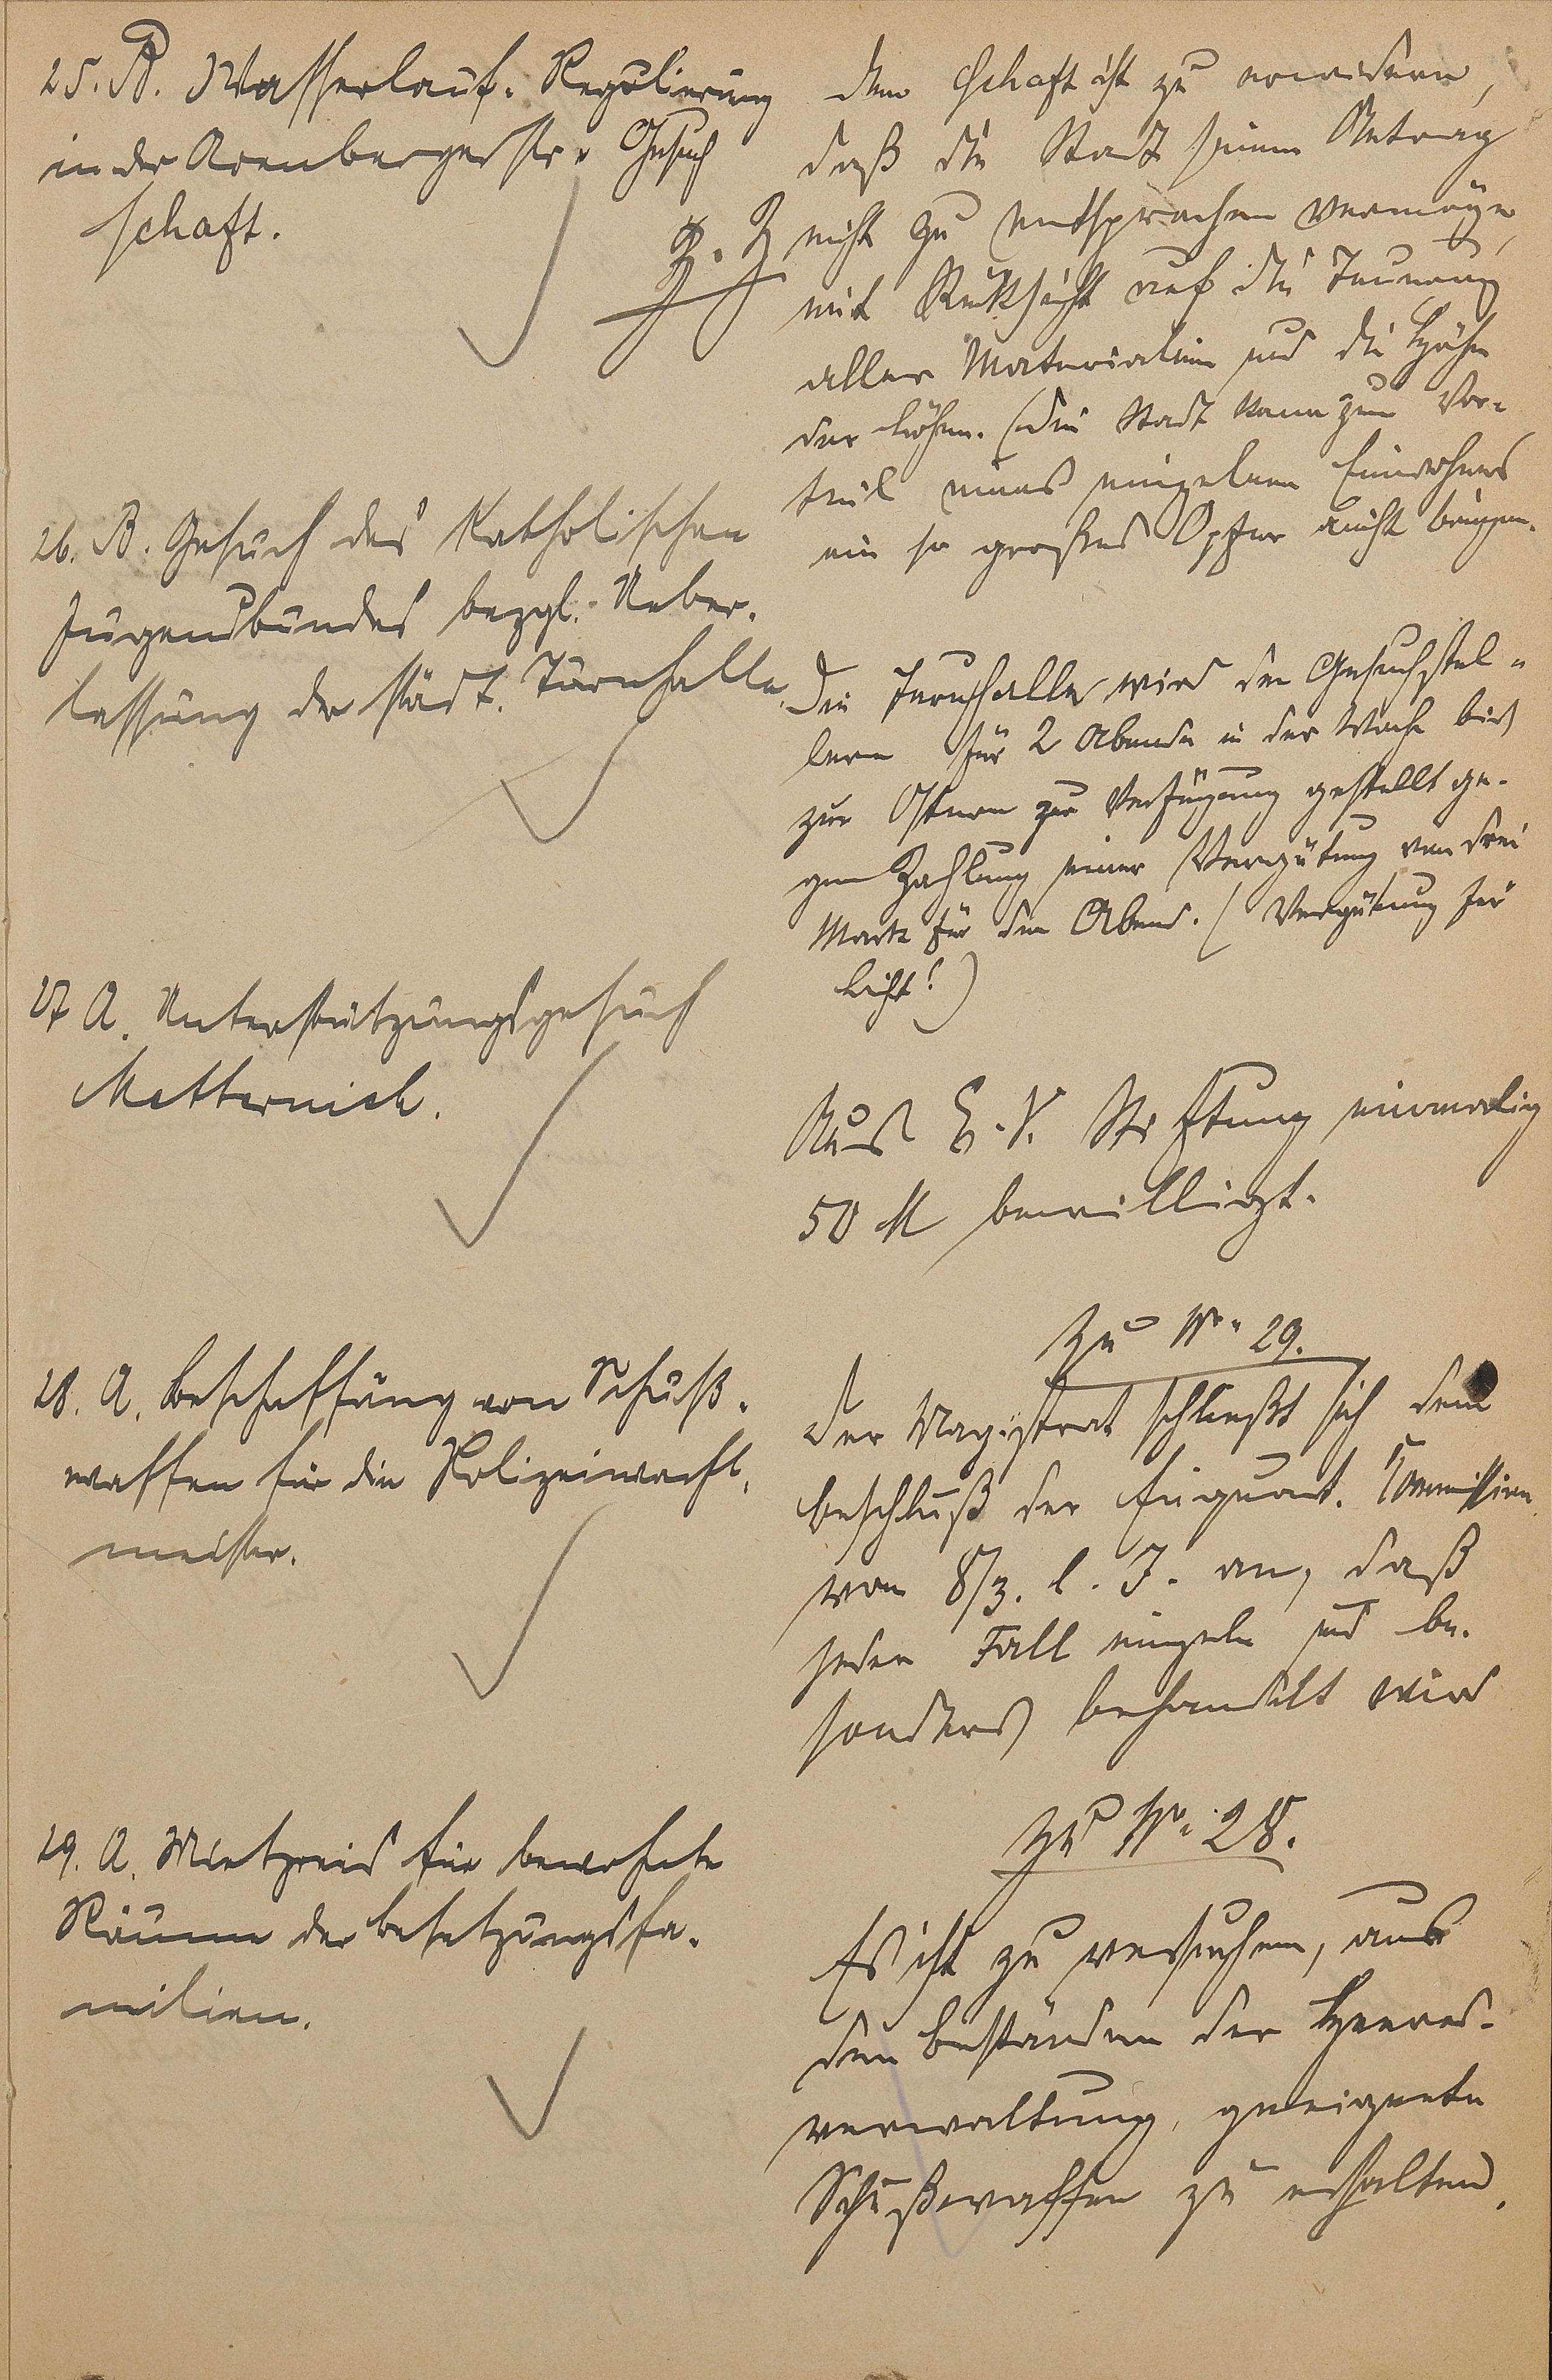 25. B. Wasserlauf-Regulierung
in der Arenbergerstr. Gesuch
Schaft.
Dem Schaft ist zu erwidern,
daß die Stadt seinem Antrag
z. Z. nicht zu entsprechen vermöge,
mit Rücksicht auf die Teuerung
aller Materialien und die Höhe
der Löhne. (Die Stadt kann zum Vor-
teil eines einzelnen Einwohners
ein so großes Opfer nicht bringen.
26. B. Gesuch des Katholischen
Jugendbundes bezgl. Ueber-
lassung der städt. Turnhalle.
Die Turnhalle wird den Gesuchstel-
lern für 2 Abende in der Woche bis
zu Ostern zur Verfügung gestellt ge-
gen Zahlung einer Vergütung von drei
Mark für den Abend. (Vergütung für
Licht!)
27 A. Unterstützungsgesuch
Metternich.
Aus E. V. Stiftung einmalig
50 M bewilligt.
28. A. Beschaffung von Schuß-
waffen für die Polizeiwacht-
meister.
Zu No 29.
Der Magistrat schließt sich dem
Beschluß der Einquart. Kommission
vom 8/3. l. J. an, daß
jeder Fall einzeln und be-
sonders behandelt wird
29. A. Mietpreis für bewohnte
Räume der Besetzungsfa-
milien.
Zu No 28.
Es ist zu versuchen, aus
den Beständen der Heeres-
verwaltung, geeignete
Schußwaffen zu erhalten.